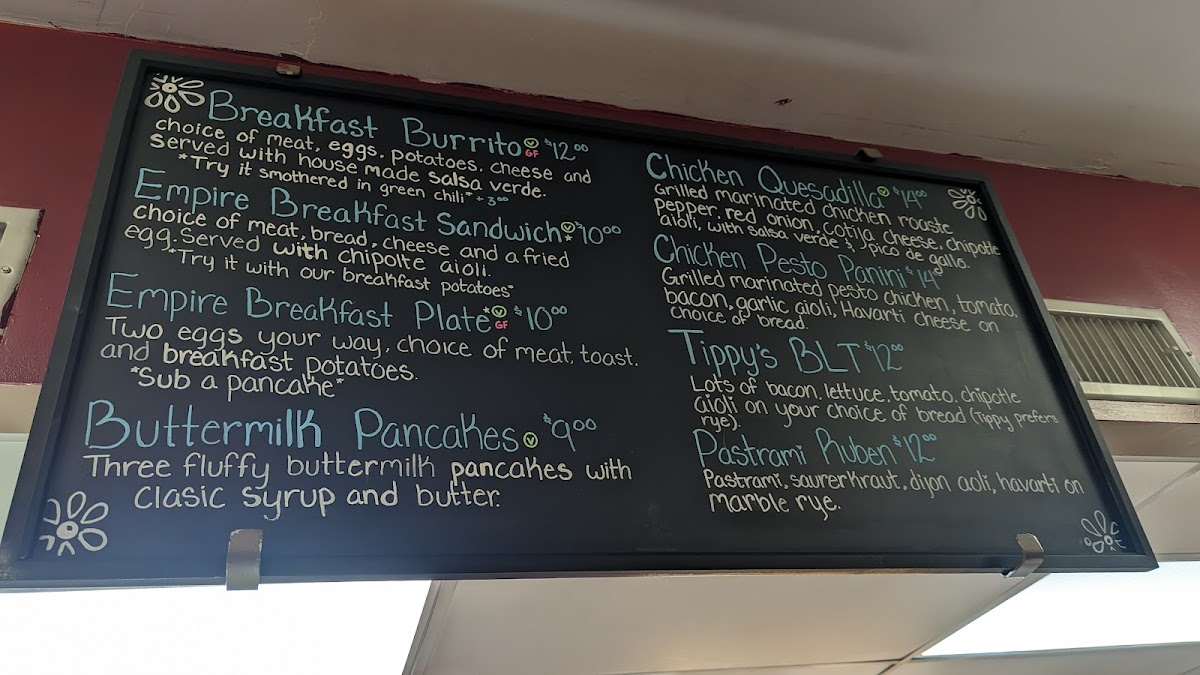 Breakfast Burrito V GF $12.00
choice of meat, eggs, potatoes, cheese and
served with house made salsa verde.
*Try it smothered in green chili* +3.00
Empire Breakfast Sandwich V * $10.00
choice of meat, bread, cheese and a fried
egg. Served with chipolte aioli.
*Try it with our breakfast potatoes*
Empire Breakfast Plate * V GF $10.00
Two eggs your way, choice of meat, toast.
and breakfast potatoes.
*Sub a pancake*
Buttermilk Pancakes V $9.00
Three fluffy buttermilk pancakes with
clasic syrup and butter.
Chicken Quesadilla V $14.00
Grilled marinated chicken roaste
pepper, red onion, cotija cheese, chipotle
aioli, with salsa verde & pico de gallo.
Chicken Pesto Panini $14.00
Grilled marinated pesto chicken, tomato,
bacon, garlic aioli, Havarti cheese on
choice of bread.
Tippy's BLT $12.00
Lots of bacon, lettuce, tomato, chipotle
aioli on your choice of bread (Tippy prefers
rye).
Pastrami Ruben $12.00
Pastrami, saurerkraut, dijon aoli, havarti on
marble rye.